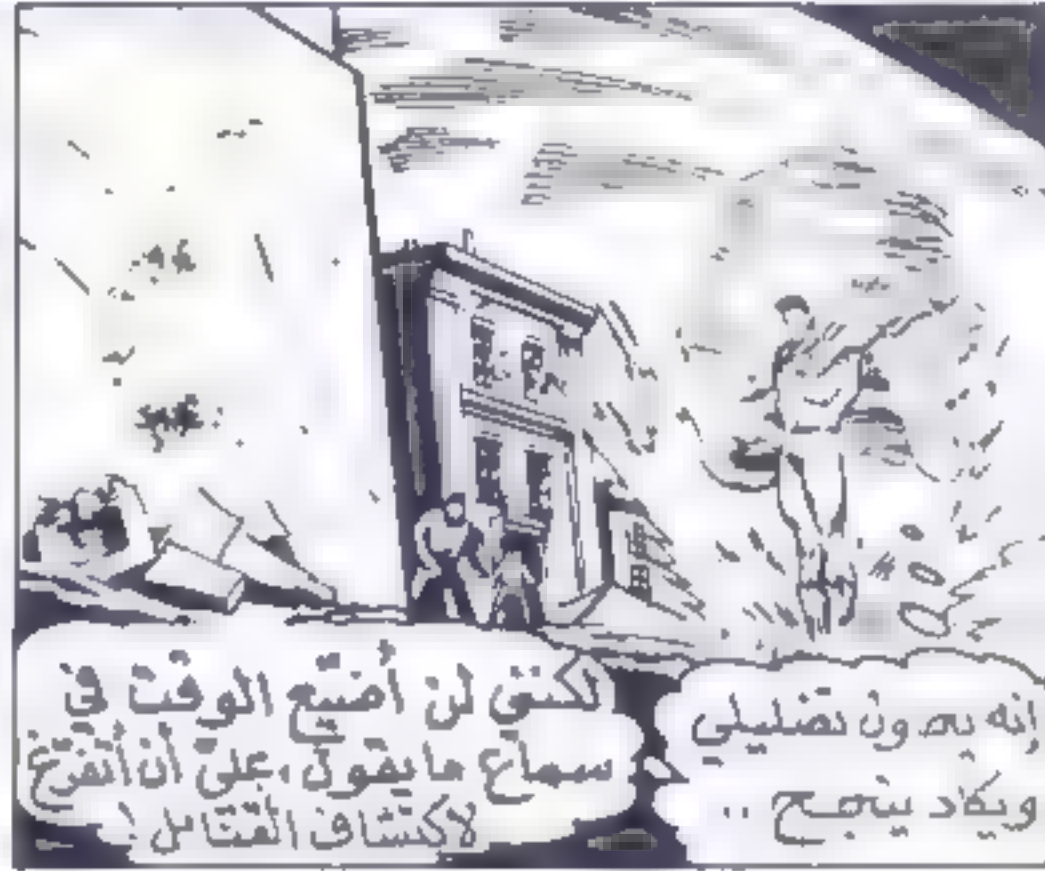 إنه يحاول تضليلي
ويكاد ينجح ..
لكنني لن أضيّع الوقت في
سماع ما يقول ، عليّ أن أتفرّغ
لاكتشاف القتامل !